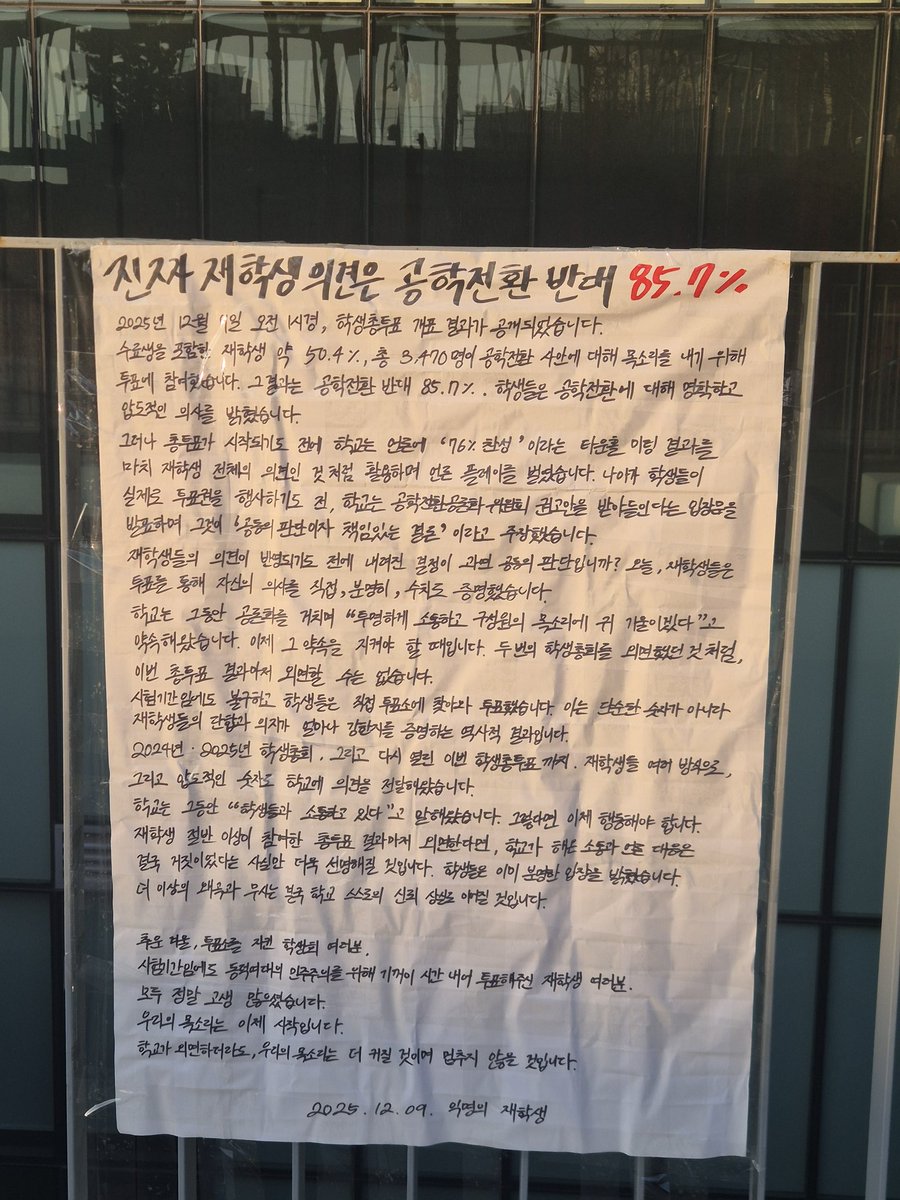 진짜 재학생 의견은 공학전환 반대 85.7%
2025년 12월 9일 오전 1시경, 학생총투표 개표 결과가 공개되었습니다.
수료생을 포함한 재학생 약 50.4%, 총 3,470명이 공학전환 사안에 대해 목소리를 내기 위해
투표에 참여했습니다. 그 결과는 공학전환 반대 85.7%. 학생들은 공학전환에 대해 명확하고
압도적인 의사를 밝혔습니다.
그러나 총투표가 시작되기도 전에 학교는 언론에 '76% 찬성'이라는 타운홀 미팅 결과를
마치 재학생 전체의 의견인 것처럼 활용하며 언론 플레이를 벌였습니다. 나아가 학생들이
실제로 투표권을 행사하기도 전, 학교는 공학전환공론화 위원회 권고안을 받아들인다는 입장문을
발표하며 그것이 '공동의 판단이자 책임있는 결론'이라고 주장했습니다.
재학생들의 의견이 반영되기도 전에 내려진 결정이 과연 공동의 판단입니까? 오늘, 재학생들은
투표를 통해 자신의 의사를 직접, 분명히, 수치로 증명했습니다.
학교는 그동안 공론화를 거치며 "투명하게 소통하고 구성원의 목소리에 귀 기울이겠다"고
약속해왔습니다. 이제 그 약속을 지켜야 할 때입니다. 두 번의 학생총회를 외면했던 것처럼,
이번 총투표 결과마저 외면할 수는 없습니다.
시험기간임에도 불구하고 학생들은 직접 투표소에 찾아와 투표했습니다. 이는 단순한 숫자가 아니라
재학생들의 단합과 의지가 얼마나 강한지를 증명하는 역사적 결과입니다.
2024년·2025년 학생총회, 그리고 다시 열린 이번 학생총투표까지. 재학생들 여러 방식으로,
그리고 압도적인 숫자로 학교에 의견을 전달해왔습니다.
학교는 그동안 "학생들과 소통하고 있다"고 말해왔습니다. 그렇다면 이제 행동해야 합니다.
재학생 절반 이상이 참여한 총투표 결과마저 외면한다면, 학교가 해온 소통과 언론 대응은
결국 거짓이었다는 사실만 더욱 선명해질 것입니다. 학생들은 이미 분명한 입장을 밝혔습니다.
더 이상의 왜곡과 무시는 결국 학교 스스로의 신뢰 상실로 이어질 것입니다.
추운 겨울, 투표소를 지킨 학생회 여러분.
시험기간임에도 동덕여대의 민주주의를 위해 기꺼이 시간 내어 투표해주신 재학생 여러분.
모두 정말 고생 많으셨습니다.
우리의 목소리는 이제 시작입니다.
학교가 외면하더라도, 우리의 목소리는 더 커질 것이며 멈추지 않을 것입니다.
2025.12.09. 익명의 재학생